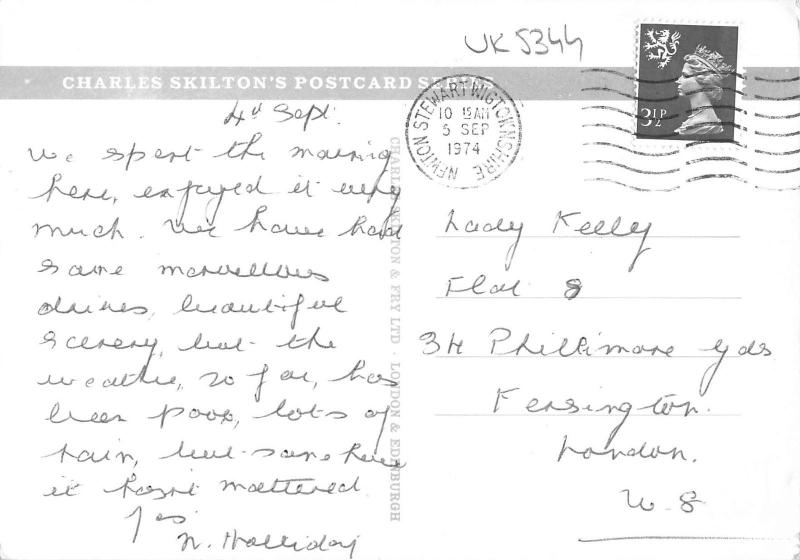 UK 5344
CHARLES SKILTON'S POSTCARD SERIES
4th Sept.
We spent the morning
here, enjoyed it very
much. We have had
some marvellous
drives, beautiful
scenery, but the
weather, so far, has
been poor, lots of
rain, but somehow
it hasn't mattered.
N. Halliday
CHARLES SKILTON & FRY LTD · LONDON & EDINBURGH
NEWTON STEWART WIGTOWNSHIRE
10 15 AM
5 SEP
1974
3½P
Lady Kelly
Flat 8
34 Phillimore Gds
Kensington.
London.
W. 8